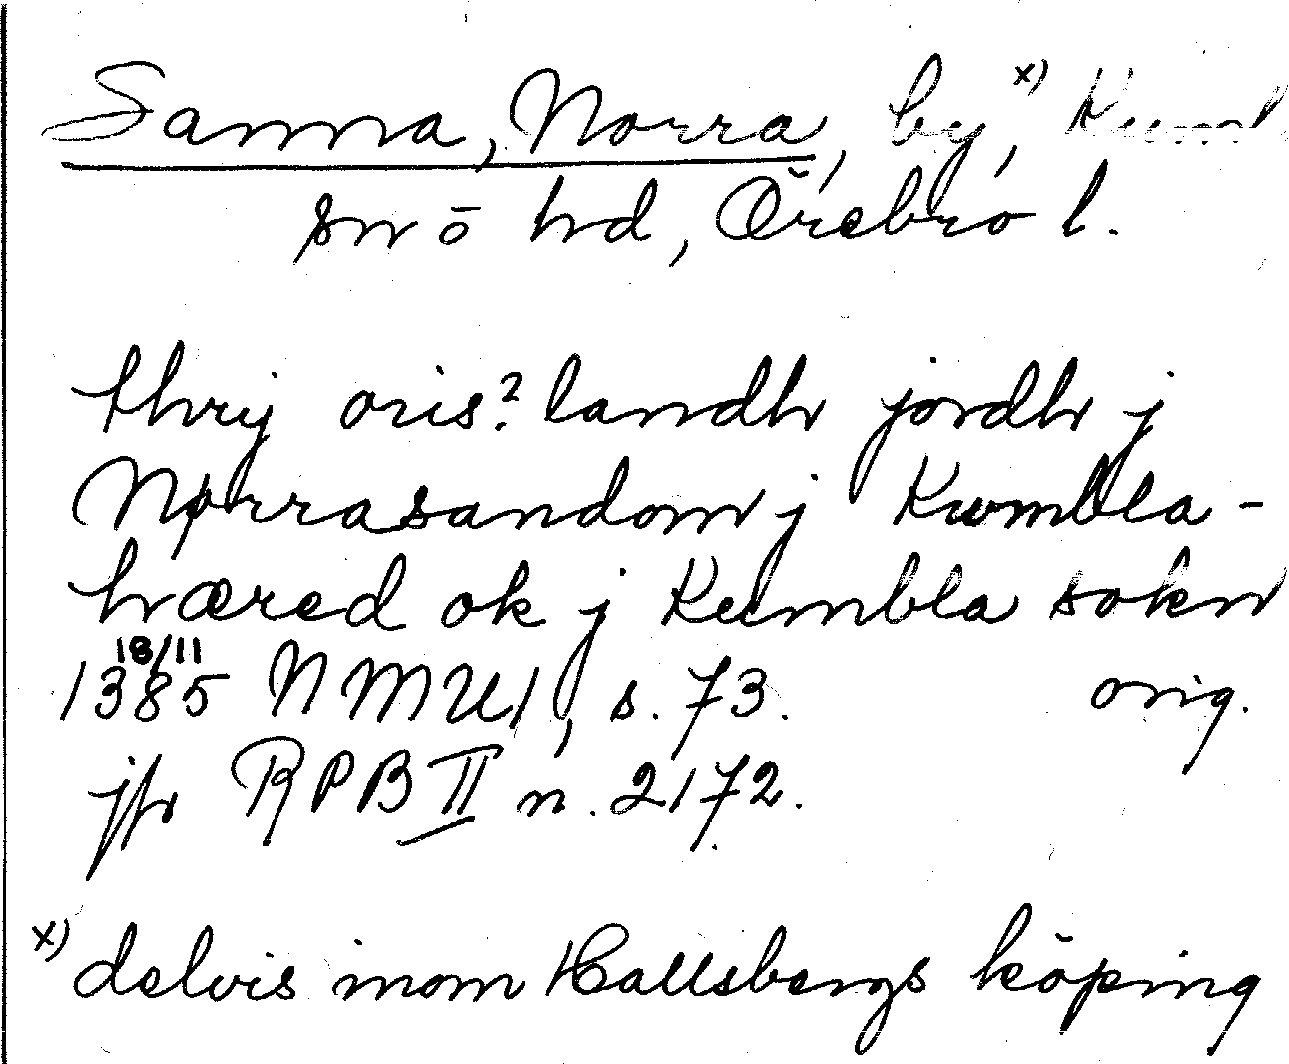 Sanna, Norra, by, x) Kumla
sn o hd, Örebro l.
thrij øris? landh jordh j
Nørrasandom j Kumbla-
hæred ok j Kumbla sokn
18/11
1385 NMU1, s. 73. orig.
jfr RPB II n. 2172.
x) delvis inom Hallsbergs köping